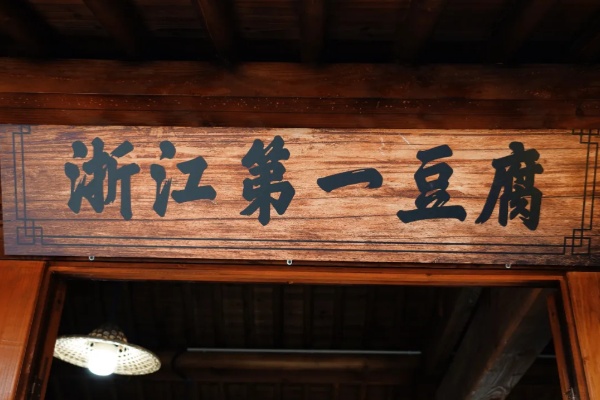 浙江第一豆腐